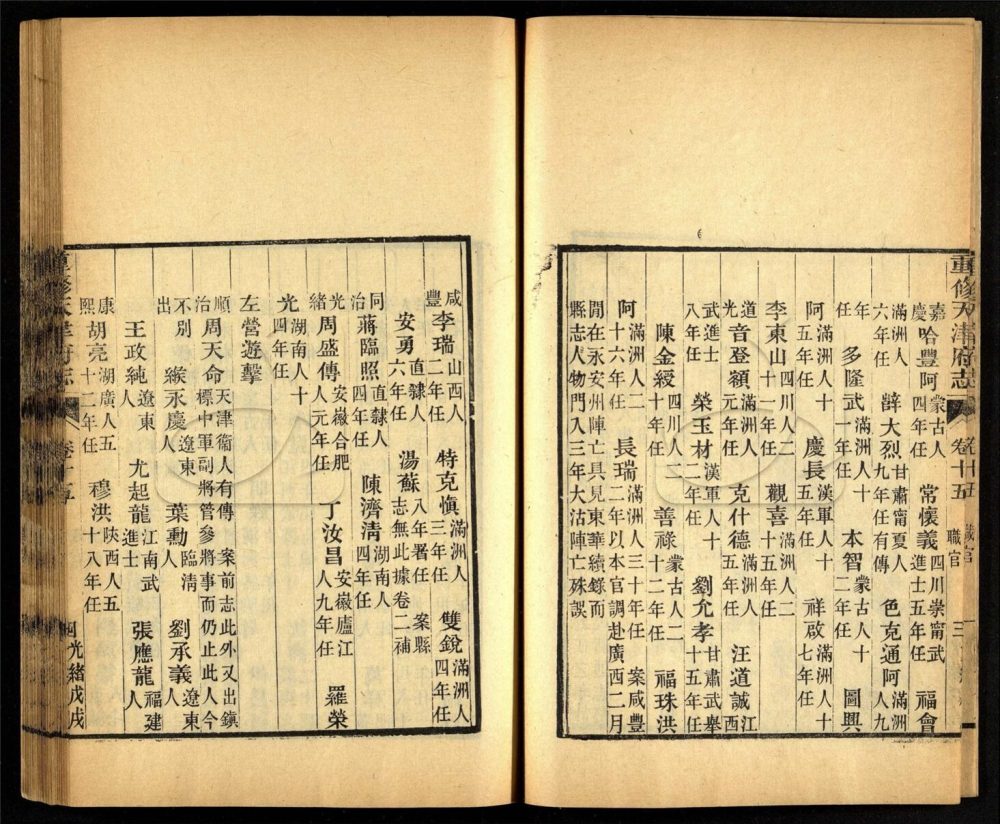 重修天津府志 卷十五 職官 三
嘉慶哈豐阿蒙古人四年任 常懷義四川崇甯武進士五年任 福會
滿洲人六年任 薛大烈甘肅甯夏人九年任有傳 色克通阿滿洲人九
年任 多隆武滿洲人十一年任 本智蒙古人十二年任 圖興
阿滿洲人十五年任 慶長漢軍人十五年任 祥啟滿洲人十七年任
李東山四川人二十一年任 觀喜滿洲人二十五年任
道光音登額滿洲人元年任 克什德滿洲人五年任 汪道誠江西
武進士八年任 榮玉材漢軍人十二年任 劉允孝甘肅武舉十五年任
陳金綬四川人二十年任 善祿蒙古人二十二年任 福珠洪
阿滿洲人二十六年任 長瑞滿洲人三十年任 案咸豐二年以本官調赴廣西二月
閒在永安州陣亡具見東華續錄而縣志人物門入三年大沽陣亡殊誤
咸豐李瑞山西人二年任 特克愼滿洲人三年任 雙銳滿洲人四年任
安勇直隸人六年任 湯蘇八年署任 案縣志無此據卷二補
同治蔣臨照直隸人四年任 陳濟清湖南人四年任
光緒周盛傳安徽合肥人元年任 丁汝昌安徽廬江人九年任 羅榮
光湖南人十四年任
左營遊擊
順治周天命天津衛人有傳 案前志此外又出鎮標中軍副將管參將事而仍止此人今
不別出 緱永慶遼東人 葉勳臨清人 劉承義遼東人
王政純遼東人 尤起龍江南武進士 張應龍福建人
康熙胡亮湖廣人五十二年任 穆洪陝西人五十八年任
重修天津府志 卷十五 光緒戊戌